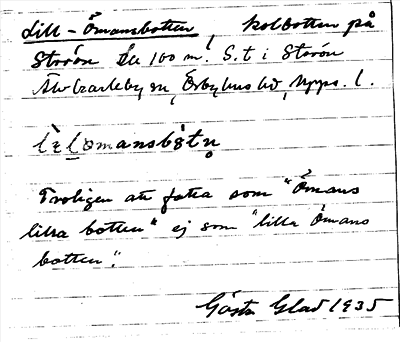 Lill-Ömansbotten, kolbotten på
Storön Su 100 m. S.t i Storön
Älvkarleby sn, Örbyhus hd, Upps. l.
lɩlömansbòtn̥
Troligen att fatta som "Ömans
lilla botten" ej som "lilla Ömans
botten".
Gösta Glad 1935